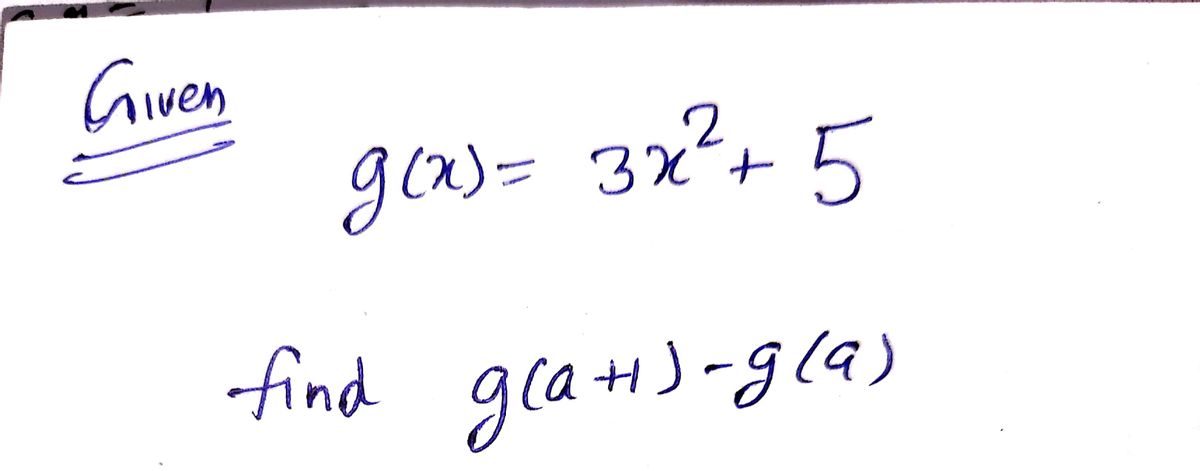 Given
g(x) = 3x² + 5
find g(a+1) - g(a)